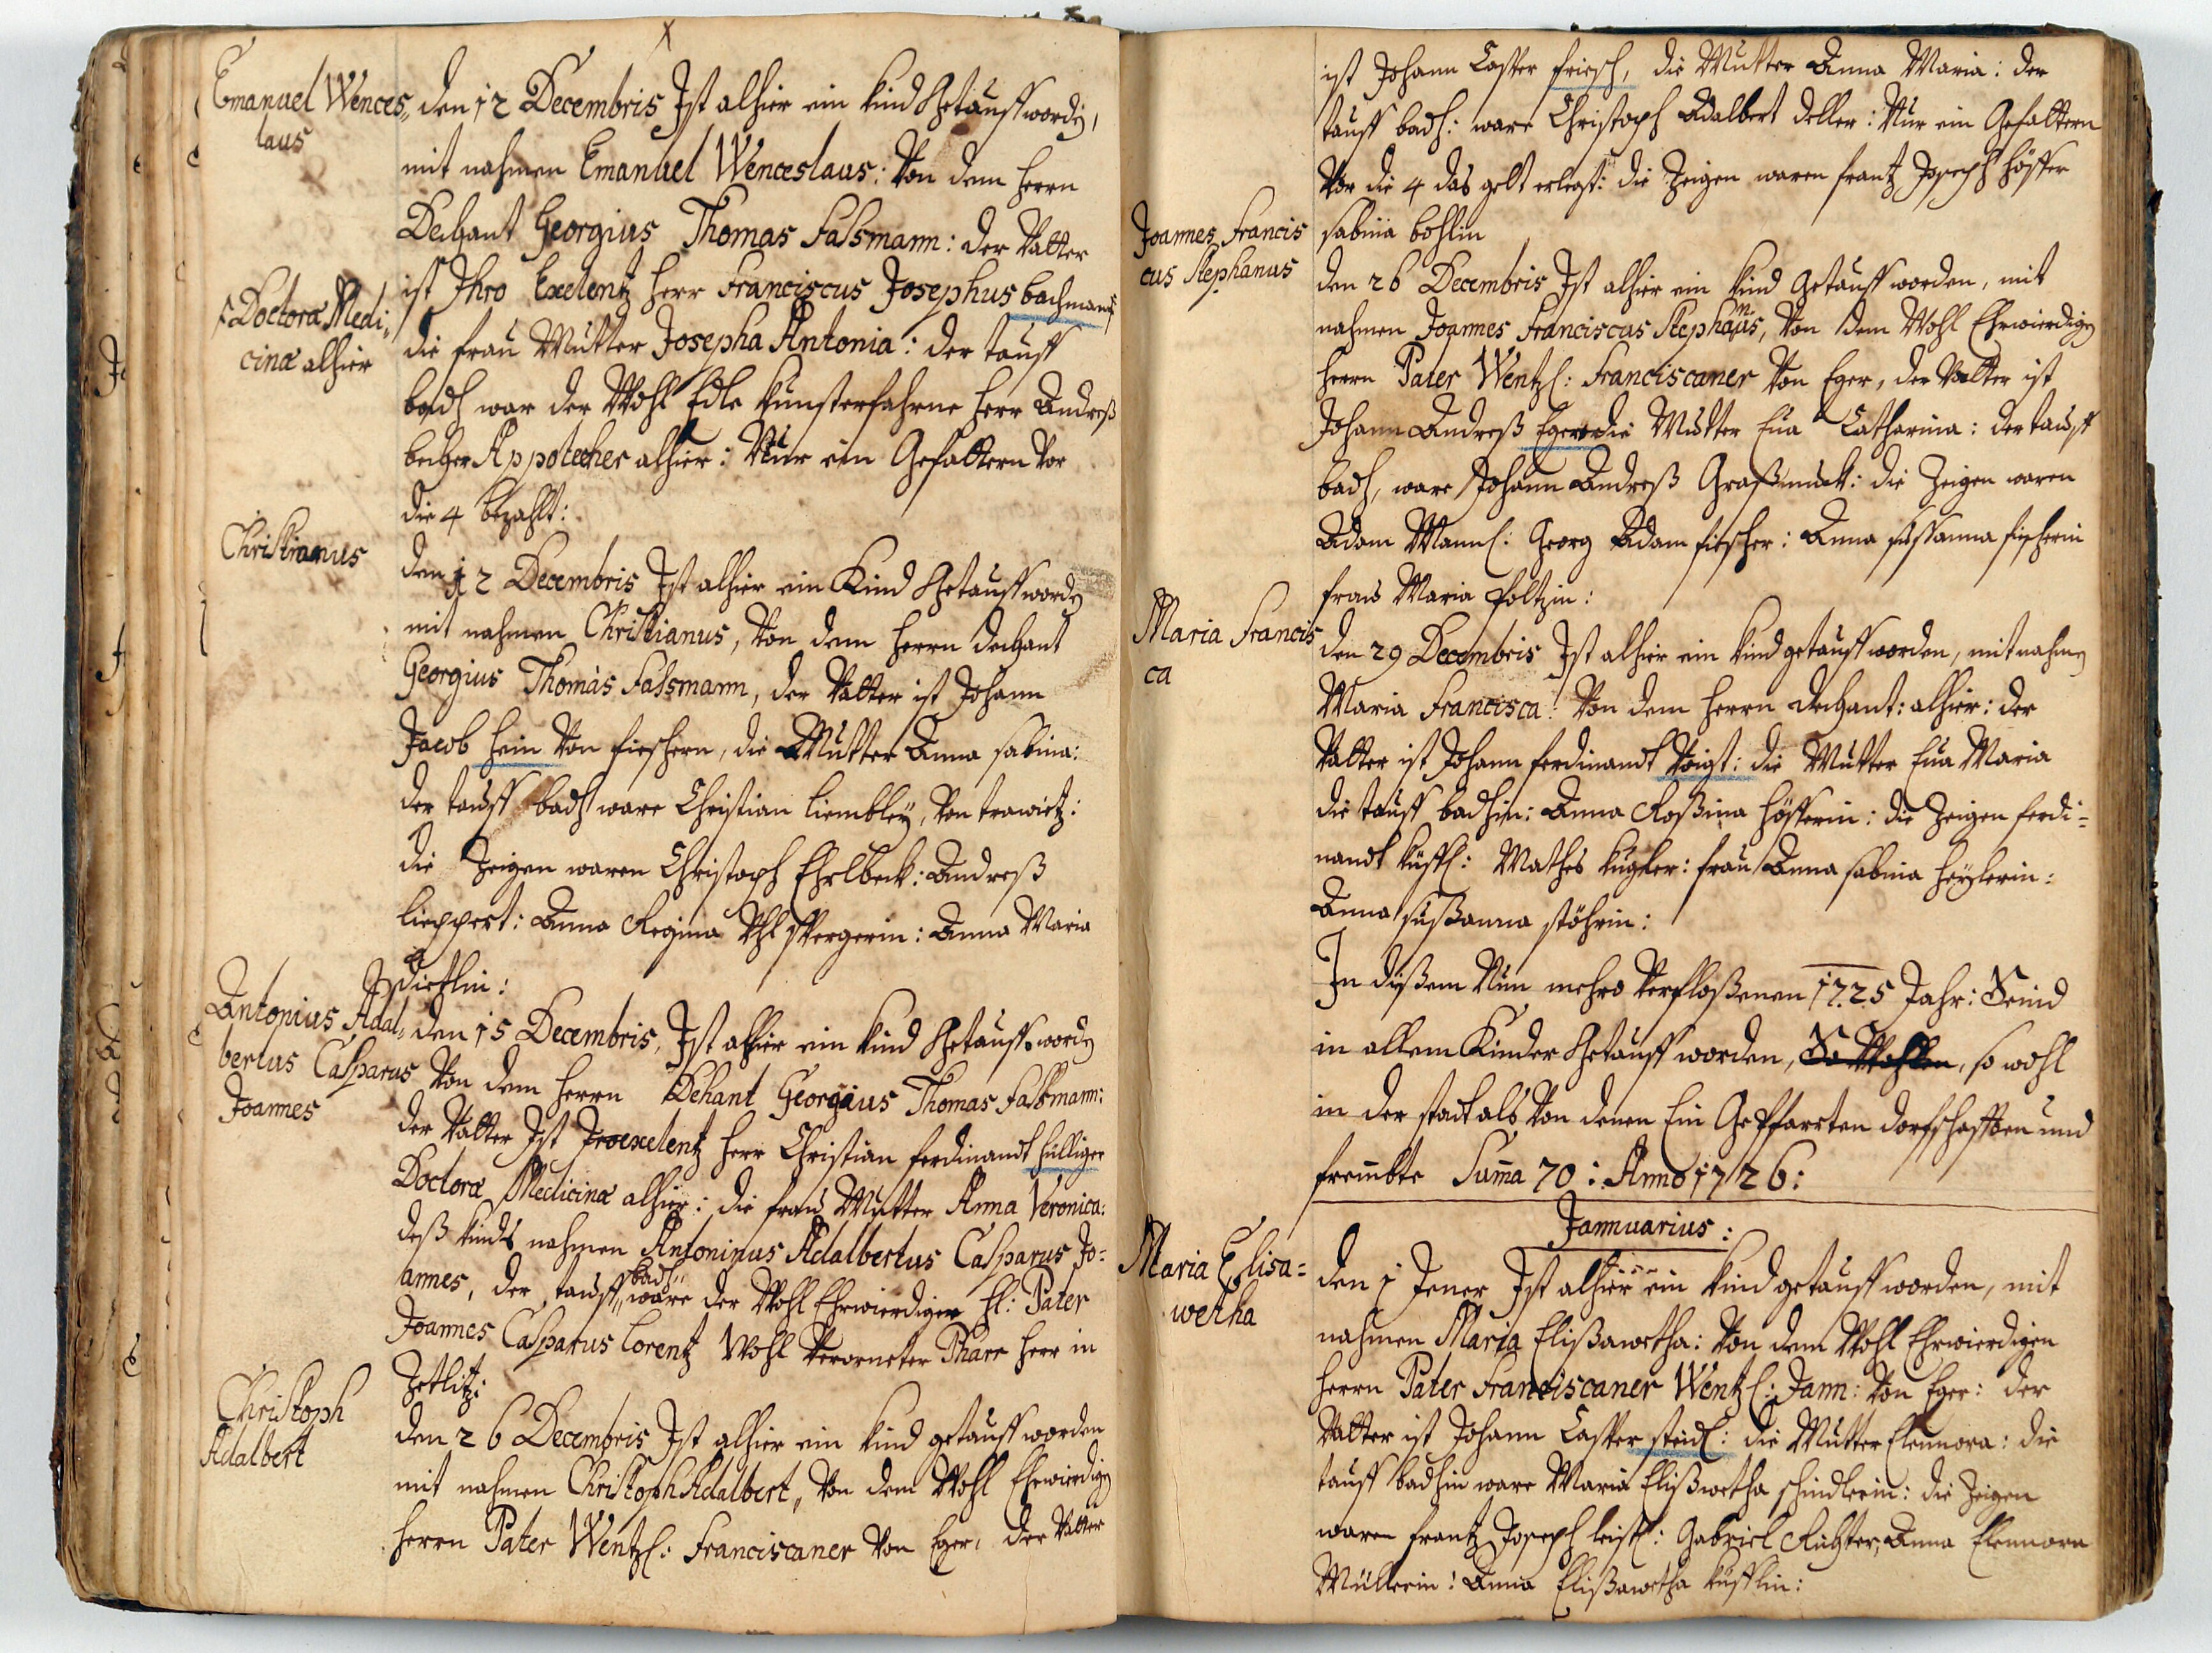 Emanuel Wences„
laus
den 12 Decembris Ist alhier ein kind Getauff worden,
mit nahmen Emanuel Wenceslaus: Von dem Herrn
Dechant Georgius Thomas Falsmann: der Vatter
ist Ihro Exelentz Herr Franciscus Josephus bachmann
Doctoræ Medi„
cinæ alhier
die frau Mutter Josepha Antonia: der tauff
badh war der Wohl Edle kunsterfahrne Herr Andreß
becher Appotecher alhier: Nur ein Gefattern Vor
die 4 bezahlt:
Christianus
den 12 Decembris Ist alhier ein Kind Getauff worden
mit nahmen Christianus, Von dem Herrn dechant
Georgius Thomas Falsmann, der Vatter ist Johann
Jacob Hein Von fischern, die Mutter Anna sabina:
der tauff badh ware Christian liembley, Von trawitz:
die Zeigen waren Christoph Ehrlbeck: Andreß
lieppert: Anna Regina Vhlspergerin: Anna Maria
Antonius Adal„
bertus Casparus
Joannes
den 15 Decembris, Ist alhier ein kind Getauff worden
Von dem Herrn Dehant Georgius Thomas Falsmann:
der Vatter Ist Iro exelentz Herr Christian ferdinandt Hülliger
Doctoræ Medicinæ alhier: die frau Mutter Anna Veronica:
deß kinds nahmen Antoninus Adalbertus Casparus Jo=
annes, der tauff badh ware der Wohl Ehrwierdiger H: Pater
Joannes Casparus Lorentz Wohl Verorneter Pharr Herr in
Zetlitz:
Christoph
Adalbert
den 26 Decembris Ist alhier ein kind getauff worden
mit nahmen Christoph Adalbert, Von dem Wohl Ehrwierdigen
Herrn Pater Wentzl: Franciscaner Von Eger, der Vatter
ist Johann Casper friesch, die Mutter Anna Maria: der
tauff badh: ware Christoph Adalbert deller: Nur ein Gefattern
Vor die 4 das gelt erlegt: die Zeigen waren frantz Joseph Höffer
sabina bohlin
Joannes Francis
cus Stephanus
den 26 Decembris Ist alhier ein kind Getauff worden, mit
nahmen Joannes Franciscus Stephanus, Von dem Wohl Ehrwierdigen
Herrn Pater Wentzl: Franciscaner Von Eger, der Vatter ist
Johann Andreß Eger die Mutter Eua Catharina: der tauff
badh, ware Johann Andreß Graßmuck: die Zeigen waren
Adam Mannl: Georg Adam fischer: Anna sussanna fischerin
frau Maria foltzin:
Maria Francis
ca
den 29 Decembris Ist alhier ein kind getauff worden, mit nahmen
Maria Francisca: Von dem Herrn dechant: alhier: der
Vatter ist Johann ferdinandt Voigt: die Mutter Eua Maria
die tauff badhin: Anna Rossina Höfferin: die Zeigen ferdi=
nandt küffl: Mathes kugler: frau Anna sabina Heylerin:
Anna sußanna stöhrin:
In dißem Nun mehro Verfloßenen 1725 Jahr: Seind
in allem Kinder Getauff worden, so wohl
in der stadt als Von denen Ein Gepfarrten dorfschafften und
frembte Suma 70: Anno 1726:
Jannuarius:
Maria Elisa=
wetha
den 1 Jener Ist alhier ein kind getauff worden, mit
nahmen Maria Elißawetha: Von dem Wohl Ehrwierdigen
Herrn Pater Franciscaner Wentzl: Jann: Von Eger: der
Vatter ist Johann Casper steidl: die Mutter Elennora: die
tauff badhin ware Maria Elißwetha schindlerin: die Zeigen
waren frantz Joseph leistl: Gabriel Richter, Anna Elennora
Müllerin: Anna Elißawetha küfflin: